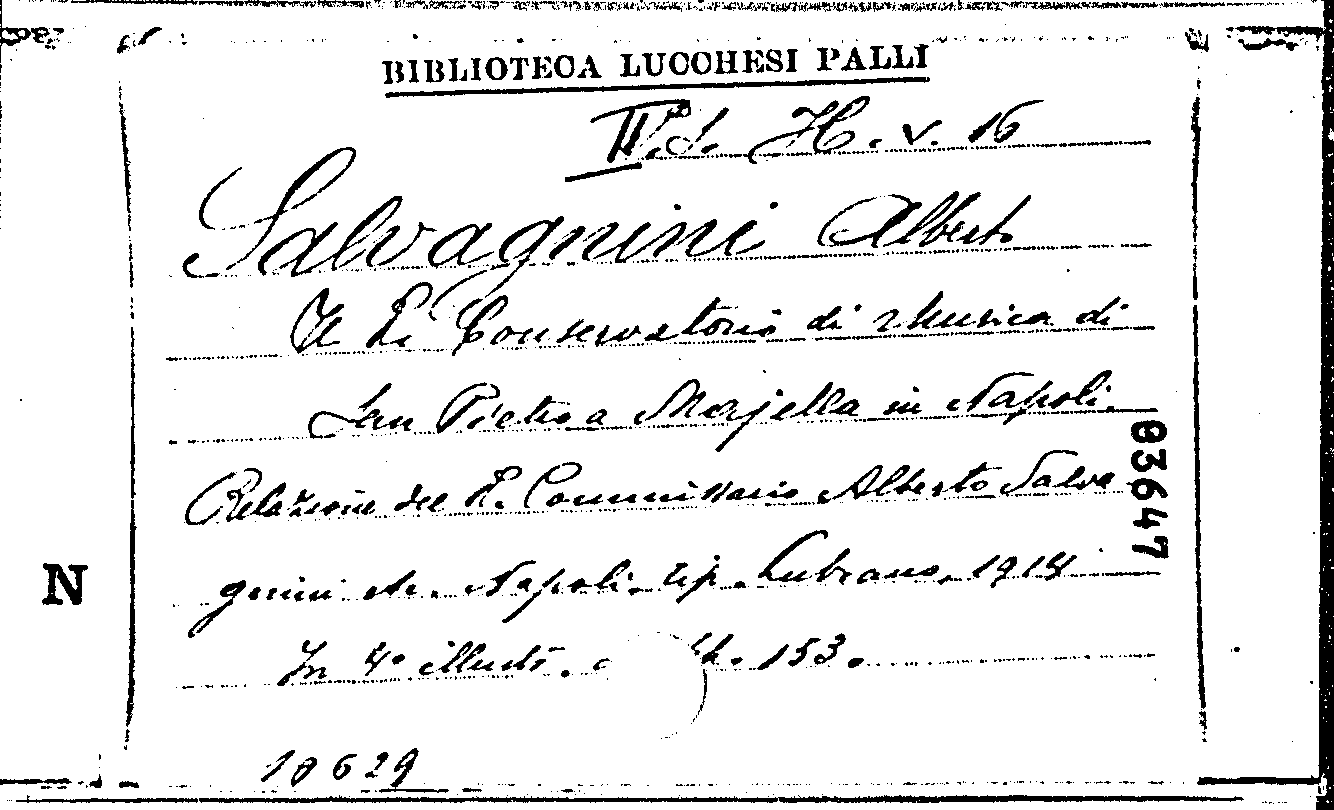 BIBLIOTECA LUCCHESI PALLI
H. v. 16
Salvagnini Alberto
Il R. Conservatorio di Musica di
San Pietro a Majella in Napoli.
Relazione del R. Commissario Alberto Salva
gnini Napoli. tip. Lubrano, 1914
In 4° illustr. 153.
10629
03647
N